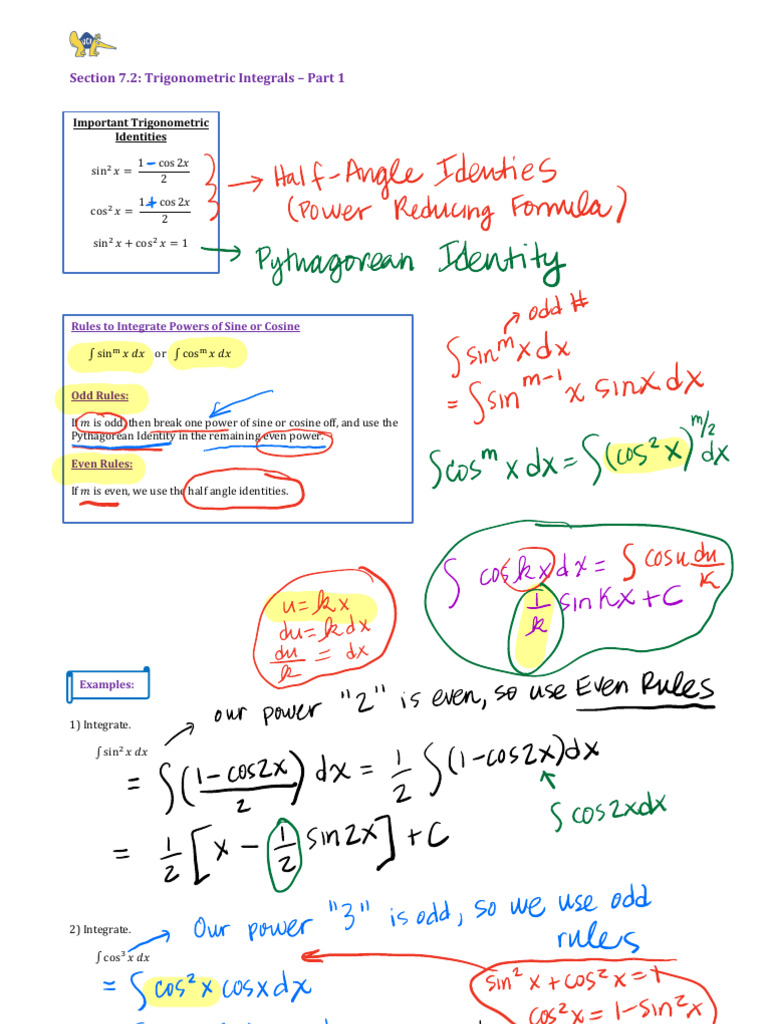 Section 7.2: Trigonometric Integrals – Part 1
Important Trigonometric
Identities
sin² x = (1 − cos 2x)/2
cos² x = (1 + cos 2x)/2
sin² x + cos² x = 1
→ Half-Angle Identies
(Power Reducing Formula)
→ Pythagorean Identity
Rules to Integrate Powers of Sine or Cosine
∫ sinᵐ x dx or ∫ cosᵐ x dx
Odd Rules:
If m is odd, then break one power of sine or cosine off, and use the
Pythagorean Identity in the remaining even power.
Even Rules:
If m is even, we use the half angle identities.
odd #
∫ sinᵐ x dx
= ∫ sinᵐ⁻¹ x sinx dx
∫ cosᵐ x dx = ∫ (cos² x)^(m/2) dx
∫ cos kx dx = ∫ cosu du/k
1/k sin kx + C
u = kx
du = k dx
du/k = dx
Examples:
1) Integrate.
our power "2" is even, so use Even Rules
∫ sin² x dx
= ∫ ((1 − cos2x)/2) dx = 1/2 ∫ (1 − cos2x) dx
∫ cos2x dx
= 1/2 [x − 1/2 sin2x] + C
2) Integrate.
Our power "3" is odd, so we use odd
rules
∫ cos³ x dx
= ∫ cos² x cosx dx
sin² x + cos² x = 1
cos² x = 1 − sin² x